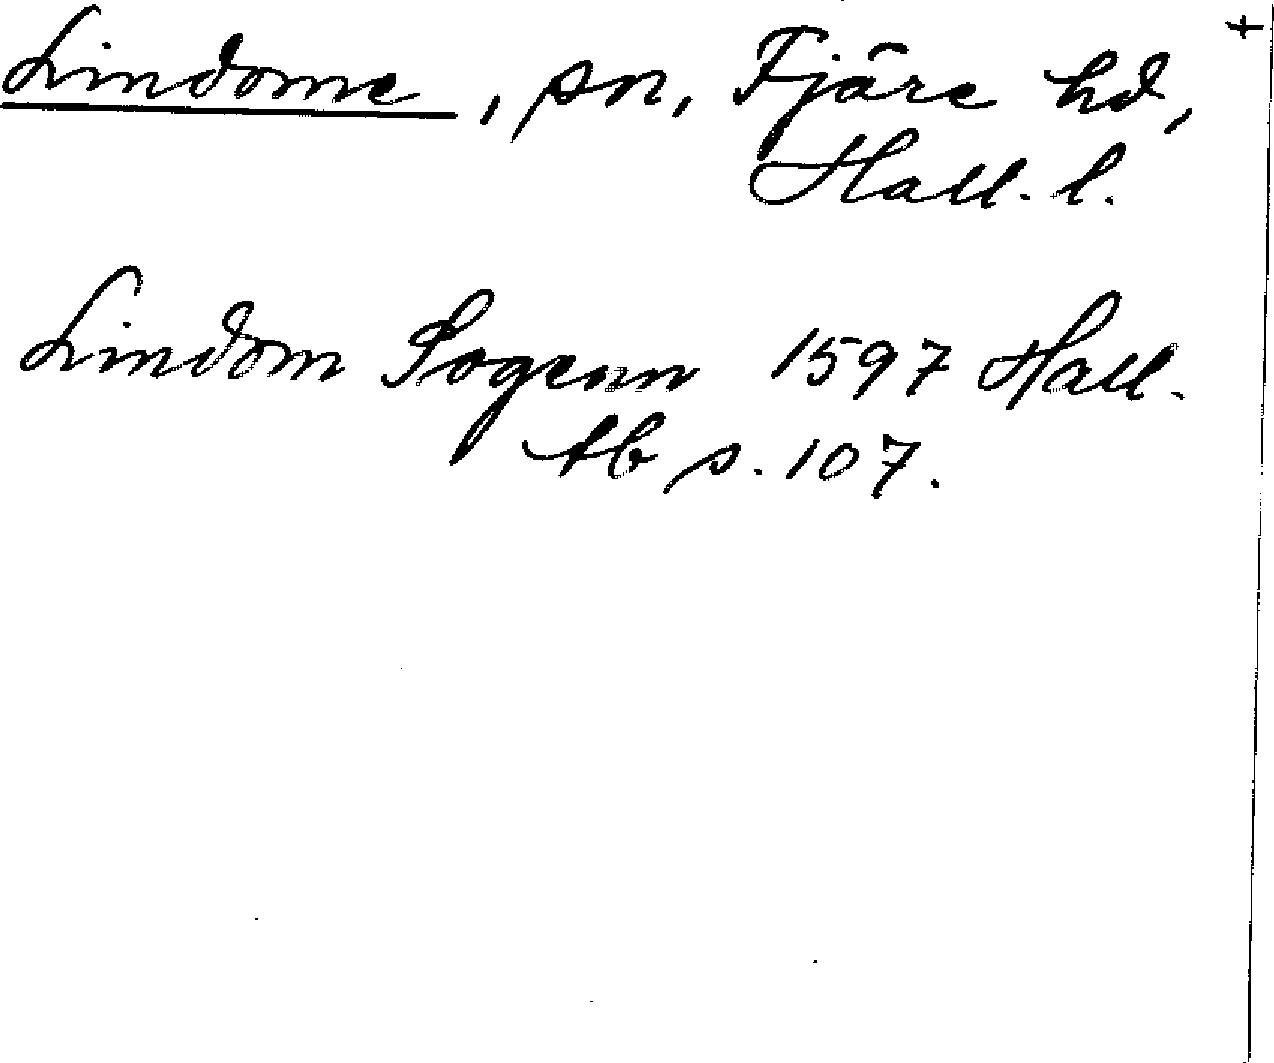 Lindome, sn, Fjäre hd, †
Hall. l.
Lindom Sogenn 1597 Hall.
tb s. 107.